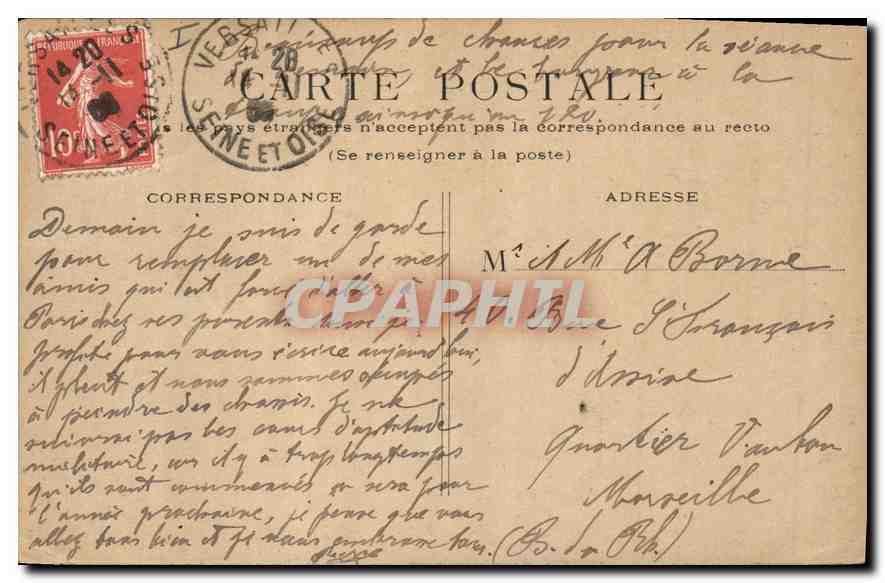 REPUBLIQUE FRANÇAISE
VERSAILL
14 20
11
SEINE ET OISE
20
SEINE ET OISE
de chances pour la séance
à la
CARTE POSTALE
les pays étrangers n'acceptent pas la correspondance au recto
(Se renseigner à la poste)
CORRESPONDANCE
ADRESSE
Demain je suis de garde
pour remplacer un de mes
amis qui est forcé d'aller à
Paris chez ses parents
profite pour vous écrire aujourd'hui,
il pleut et nous sommes occupés
à peindre des chassis. Je ne
suivrai pas les cours d'aptitude
militaire, car il y a trop longtemps
qu'ils sont commencés ce sera pour
l'année prochaine, je pense que vous
allez tous bien et je vous embrasse tous.
Pierre
Mr et Me A Borne
40 Rue St François
d'Assise
Quartier Vauban
Marseille
(B. du Rh.)
CPAPHIL